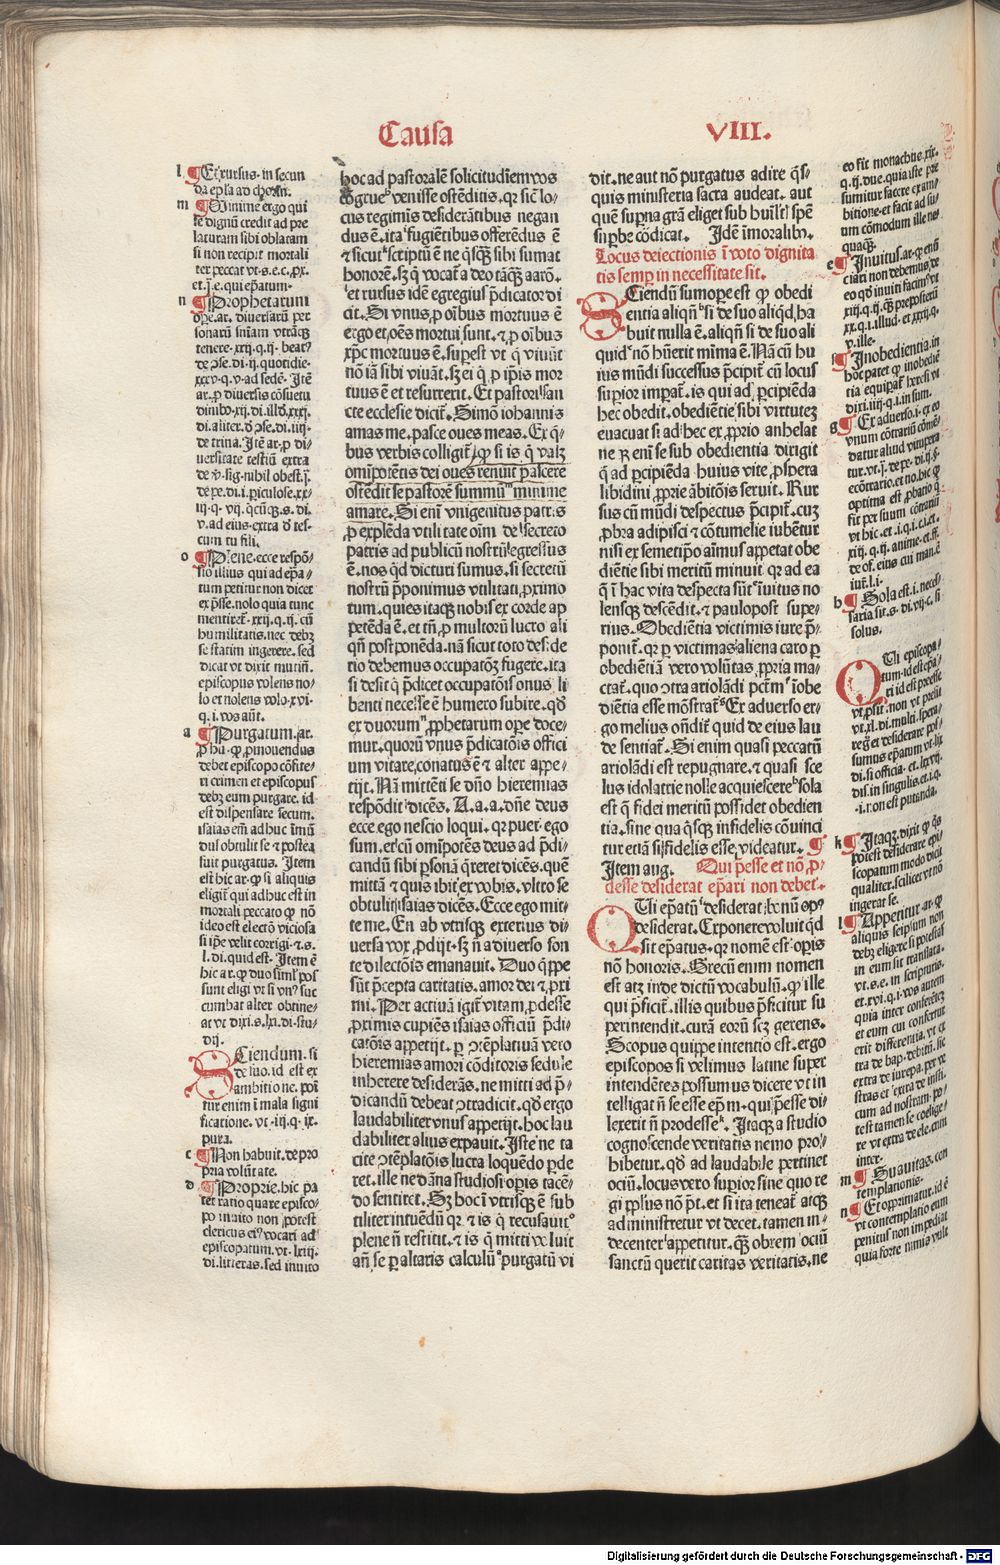 Causa
VIII.
l ¶ Et rursus. in secun
da epła ad
m ¶ Minime ergo qui
se dignū credit ad pre
laturam sibi oblatam
si non recipit mortali
ter peccat vt.s.e.c.
et.j.e. qui epatum.
n ¶ Prophetarum
diuersarū per
sonarū sniam vtrāq
tenere.xxij.q.ij. beat9
de ɔse.di.ij.quotidie.
xxxv.q.v.ad sedē. Itē
ar.p diuersis cōsuetu
dinib9.xij.di.illō.xxxj.
di.aliter.d ɔse.di.iiij.
de trina. Itē ar.p di
uersitate testiū extra
de v.sig.nihil obest.j.
de pe.di.i.piculose.xx
iij.q.vij.qcūq.s.di.
v.ad eius.extra d tes
cum tu fili.
o ¶ Plene.ecce respō
sio illius qui ad epa
tum petitur non dicet
ex pse.nolo quia tunc
mentiret.xxij.q.ij.cū
humilitatis.nec debz
se statim ingerere.sed
dicat vt dixit martin.
episcopus volens no
lo et nolens volo.xvi.
q.i.vos aūt.
a ¶ Purgatum.ar.
p hu.qp pmouendus
debet episcopo cōfite
ri crimen et episcopus
debz eum purgare.id
est dispensare secum.
isaias em adhuc
dus obtulit se et postea
fuit purgatus. Item
est hic ar.qp si aliquis
eligit qui adhuc est in
mortali peccato qp nō
ideo est electō viciosa
si ipe velit corrigi.et.s.
l.di.quid est. Item ē
hic ar.qp duo siml pos
sunt eligi vt si vn9 suc
cumbat alter obtine
at vt dixi.s.lxi.di.stu
dij.
SCiendum.si
de suo.id est ex
ambitione.pōt
tur enim i mala signi
ficatione.vt.iij.q.ix.
pura.
c ¶ Non habuit.de pro
pria volūtate.
d ¶ Proprie.hic pa
tet ratio quare episco
po inuito non potest
clericus ei9 vocari ad
episcopatum.vt.lxiij.
di.litteras.sed inuito
hoc ad pastoralē solicitudiem vos
cōgrue venisse ostēditis.qr sic lo
cus regimis desiderātibus negan
dus ē.ita fugiētibus offerēdus ē
et sicut scriptū ē ne qsq sibi sumat
honorē.sz q vocat a deo tāq aarō.
et rursus idē egregius pdicator di
cit. Si vnus p oib9 mortuus ē
ergo et oēs mortui sunt.et p oib9
xpc mortuus ē.supest vt q viuūt
nō iā sibi viuāt.sz ei q p ipis mor
tuus ē et resurrexit. Et pastori san
cte ecclesie dicit. Simō iohannis
amas me.pasce oues meas. Ex q
bus verbis colligit.qp si is q valz
omipotētis dei oues renuit pascere
ostēdit se pastorē summū minime
amare. Si eni vnigenitus patris
p explēda vtilitate oim de secreto
patris ad publicū nostrū egressus
ē.nos qd dicturi sumus.si secretū
nostrū pponimus vtilitati proximo
tum.quies itaq nobis ex corde ap
petēda ē.et tn p multorū lucro ali
qn postponēda.nā sicut toto desi de
rio debemus occupatōz fugere.ita
si desit q pdicet occupatōis onus li
benti necesse ē humero subire.qd
ex duorum prophetarum ope doce
mur.quorū vnus pdicatōis offici
um vitare conatus ē et alter appe
tijt. Nā mittēti se dño hieremias
respōdit dicēs. A.a.a.dñe deus
ecce ego nescio loqui.qr puer ego
sum.et cū omipotēs deus ad pdi
candū sibi psonā qreret dicēs.quē
mittā et quis ibit ex vobis.vltro se
obtulit isaias dicēs. Ecce ego mit
te me. En ab vtrisq exterius di
uersa vox pdijt.sz nō a diuerso fon
te dilectōis emanauit. Duo qppe
sūt pcepta caritatis.amor dei et pxi
mi. Per actiuā igit vitam pdesse
proximis cupiēs isaias officiū pdi
catōis appetijt.p ɔtēplatiuā vero
hieremias amori cōditoris sedule
inherere desiderās.ne mitti ad p
dicandū debeat ɔtradicit.qd ergo
laudabiliter vnus appetijt.hoc lau
dabiliter alius expauit. Iste ne ta
cite ɔtēplatōis lucra loquēdo pde
ret.ille ne dāna studiosi opis tacē
do sentiret. Sz hoc i vtrisq ē sub
tiliter intuēdū qr et is q recusauit
plene n restitit.et is q mitti voluit
añ se p altaris calculū purgatū vi
dit.ne aut nō purgatus adire qs
quis ministeria sacra audeat. aut
quē supna grā eliget sub huilit spē
supbe cōdicat. Idē i moralib9.
Locus deiectionis i voto dignita
tis semp in necessitate sit.
SCiendū sumope est qp obedi
entia aliqn si de suo aliqd ha
buit nulla ē.aliqn si de suo ali
quid nō huerit mima ē. Nā cū hu
ius mūdi successus pcipit cū locus
supior imperat.is qui ad pcipiēda
hec obedit.obediētie sibi virtutez
euacuat si ad hec ex pprio anhelat
ne enī se sub obedientia dirigit
q ad pcipiēda huius vite pspera
libidini pprie ābitōis seruit. Rur
sus cū mūdi despectus pcipit.cuz
pbra adipisci et cōtumelie iubētur
nisi ex semetipo aīmus appetat obe
diētie sibi meritū minuit.qr ad ea
q i hac vita despecta sūt inuitus no
lensq descēdit.et paulopost supe
rius. Obediētia victimis iure p
ponit.qr p victimas aliena caro p
obediētiā vero volūtas ppria ma
ctat.quo ɔtra ariolādi pctm inobe
diētia esse mōstrat. Ex aduerso er
go melius ondit quid de eius lau
de sentiat. Si enim quasi peccatū
ariolādi est repugnare.et quasi sce
lus idolatrie nolle acquiescere sola
est q fidei meritū possidet obedien
tia.sine qua qsq infidelis cōuinci
tur etiā si fidelis esse videatur. ¶
Item aug. Qui pesse et nō p
desse desiderat epari non debet.
QUi epatū desiderat bonū op9
desiderat. Exponere voluit qd
sit epatus.qr nomē est opis
nō honoris. Grecū enim nomen
est atz inde dictū vocabulū.qp ille
qui pficit.illis quibus pficitur su
perintendit.curā eorū scz gerens.
Scopus quippe intentio est.ergo
episcopos si velimus latine super
intendētes possumus dicere vt in
telligat n se esse epm.qui pesse di
lexerit n prodesse. Itaq a studio
cognoscende veritatis nemo pro
hibetur.qd ad laudabile pertinet
ociū.locus vero supior sine quo re
gi pplus nō pt.et si ita teneat atq
administretur vt decet.tamen in
decenter appetitur.q obrem ociū
sanctū querit caritas veritatis.ne
eo fit monachus.xix.
q.ij.due.quia iste pre
sumitur facere ex am
bitione.et facit ad su
um cōmodum ille nō
quaq.
e ¶ Inuitus.ar.qp enū
ciari non debemus de
eo qd inuiti facim9.vt
xiij.q.ij.q preposterū
xx.q.i.illud.et xxxij.q.
v.ille.
¶ Inobedientia.in
hoc patet qp inobediē
tia equiparat heresi vt
dixi.iiij.q.i.in sum.
g ¶ Ex aduerso.i.ex eo
vnum cōtrariū cōmē
datur aliud vitupera
tur.vt.j.de pe.di.ij.s.
ecōtrario.et no.hic qp
optima est pbatio q
fit per suum cōtrariū
vt hic.et.i.q.i.c.i.et.
xij.q.ij.anime.et.ff.
de of.eius cui man.ē
iur.l.i.
h ¶ Sola est.i.neces
saria sit.s.di.vij.c.si
solus.
QUi episcopa
tum.id est epa
ri id est preesse
vt psit.non vt presit
vt.xl.di.multi.spera
reg et desiderare pos
sumus epatum vt.lix
di.si officia.et.lxvij.
dis.in singulis.et.i.q.
.i.non est putanda.
k ¶ Itaqz.dixit qp qs
potest desiderare epi
scopatum modo dicit
qualiter.scilicet vt nō
ingerat se.
l ¶ Appetitur.ar.qp
aliquis seipsum non
debz eligere si potestas
in eum sit translata.
vt.s.e.in scripturis.
et.xvi.q.i.vos autem
quia inter conferētez
et eum cui confertur
erit differentia.vt ex
tra de bap.debitū.sic
extra de iurepa.per ve
stras et extra de insti.
cum ad nostram.po
test tamen se eselige
re vt extra de ele.cum
inter.
m ¶ Suauitas.con
templationis.
n ¶ Et opprimatur.id ē
vt contemplatio eum
penitus non impediat
quia forte nimia vult
Digitalisierung gefördert durch die Deutsche Forschungsgemeinschaft - DFG